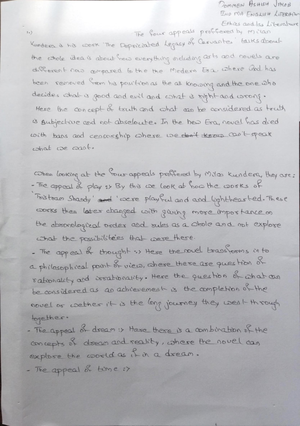 II MA English Literature
Ethics and/in Literature
The four appeals proffessed by Milan
Kundera is his work The Depreciated Legacy of Cervantes talks about
the whole idea of about how everything including arts and novels are
different now compared to the the Modern Era. Where God has
been removed from his position as the all knowing and the one who
decides what is good and evil and what is right and wrong.
Here the concept of truth and what can be considered as truth,
is subjective and not absolute. In the new Era, novel has died
with bans and censorship where we can't speak
what we want.
When looking at the four appeals proffessed by Milan Kundera, they are:
- The appeal of play :- By this we look at how the works of
'Tristram Shandy' were playful and and lighthearted. These
works then later changed with giving more importance on
the chronological order and rules as a whole and not explore
what the possibilities that were there.
- The appeal of thought :- Here the novel transforms in to
a philosophical point of view, where there are question of
rationality and irrationality. Here the question of what can
be considered as an achievement is the completion of the
novel or wether it is the long journey they went through
together.
- The appeal of dream :- Here there is a combination of the
concepts of dream and reality, where the novel can
explore the world as if in a dream.
- The appeal of time :-